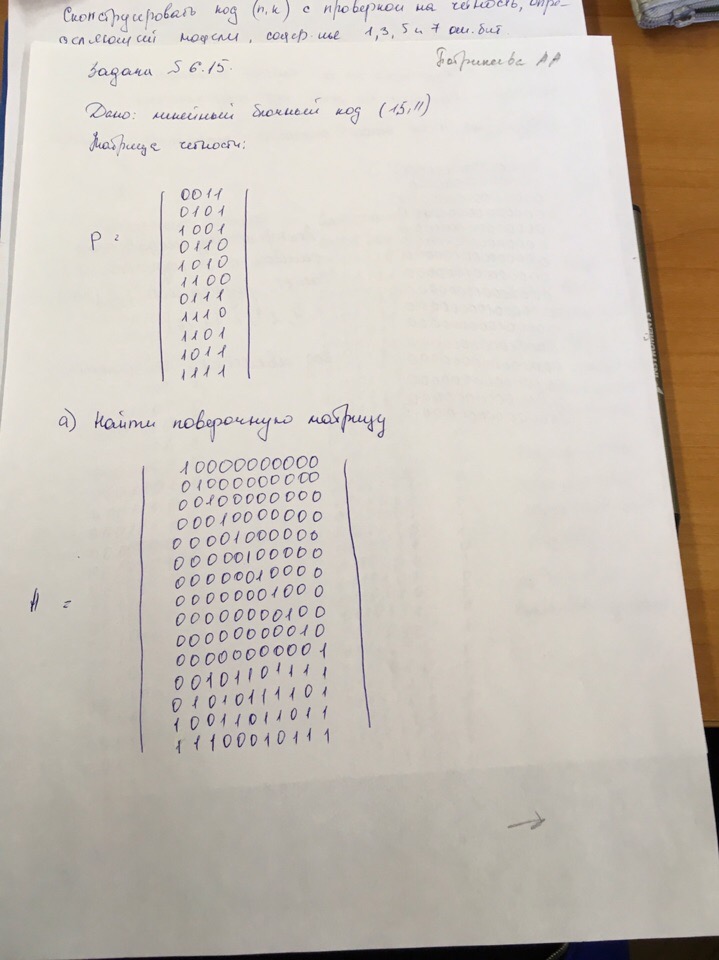 Сконструировать код (n, k) с проверкой на чётность, опре-
модели, 1, 3, 5 и 7 ош. бит.
Задача § 6.15.
АА
Дано: линейный блочный код (15, 11)
Матрица четности:
0011
0101
1001
P = 0110
1010
1100
0111
1110
1101
1011
1111
а) Найти поверочную матрицу
10000000000
01000000000
00100000000
00010000000
00001000000
00000100000
00000010000
H = 00000001000
00000000100
00000000010
00000000001
00101101111
01010111101
10011011011
11100010111
→